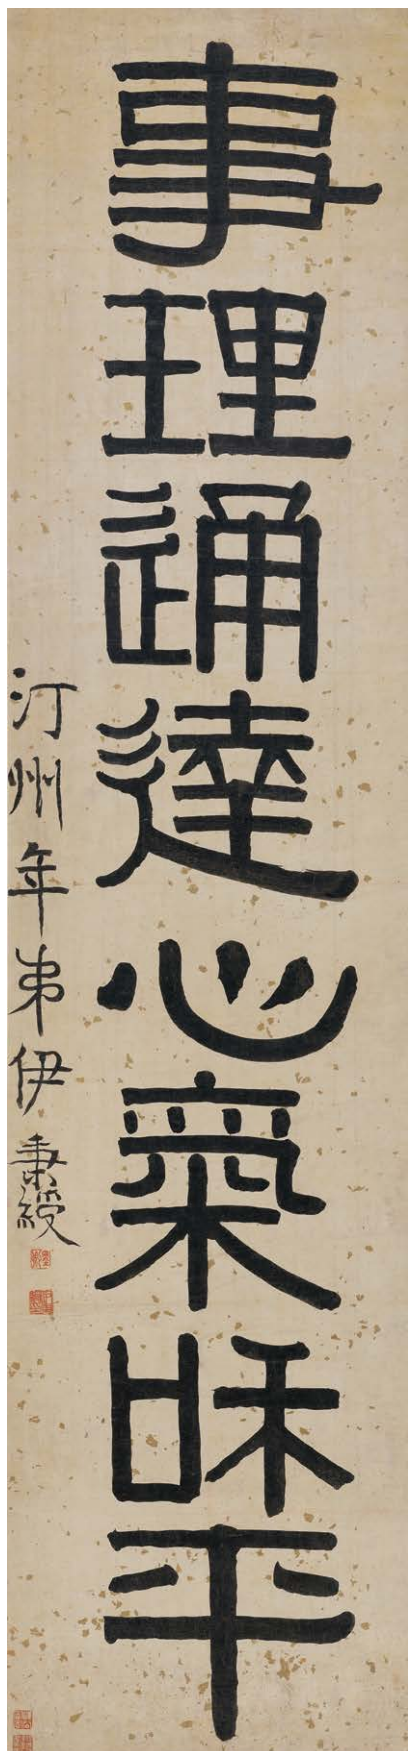 事理通達心氣和平
汀州年弟伊秉綬